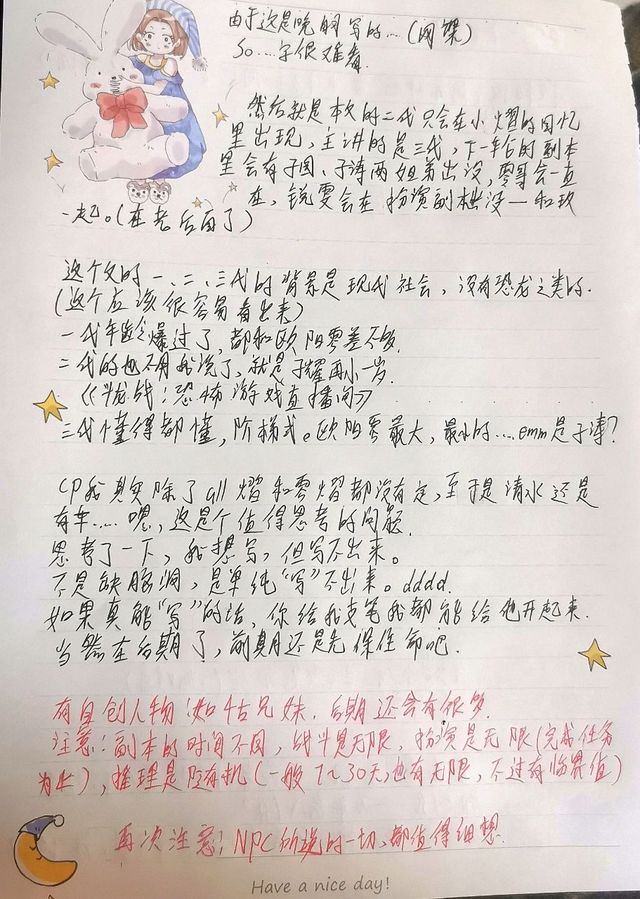 由于这是晚上写的……(网架)
So……字很难看.
然后就是本文的二代只会在小熠的回忆
里出现,主讲的是三代,下一年的副本
里会有子因、子涛两姐弟出没,零哥会一直
在,锐雯会在扮演副本出没一和玖
一起。(在老后面了)
这个文的一、二、三代的背景是现代社会,没有恐龙之类的.
(这个应该很容易看出来)
一代年龄爆过了,都和欧阳零差不多.
二代的也不用我说了,就是子耀再小一岁.
《斗龙战:恐怖游戏直播间》
三代懂得都懂,阶梯式。欧阳零最大,最小的……emm是子涛?
CP我其实除了all熠和零熠都没有定,至于是清水还是
有车……嗯,这是个值得思考的问题.
思考了一下,我想写,但写不出来。
不是缺脑洞,是单纯“写”不出来。dddd.
如果真能“写”的话,你给我支笔我都能给他开起来.
当然在后期了,前期还是先保住命吧.
有自创人物:如佑兄妹.后期还会有很多.
注意:副本的时间不同,战斗是无限,扮演是无限(完成任务
为止),推理是随机(一般7~30天,也有无限,不过有临界值)
再次注意:NPC所说的一切,都值得细想.
Have a nice day!